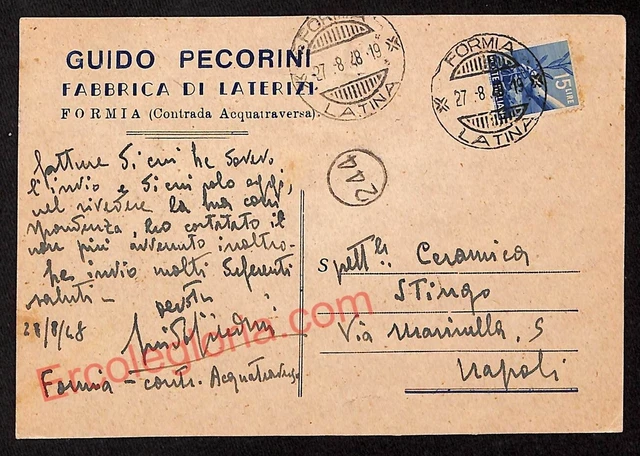 GUIDO PECORINI
FABBRICA DI LATERIZI
FORMIA (Contrada Acquatraversa).
FORMIA
27-8 48-19
LATINA
FORMIA
27-8 48-19
LATINA
15 LIRE
244
fatture di cui ho
l'invio e di cui solo oggi,
nel rivedere la mia corri
spondenza, ho costatato il
non più avvenuto inoltro-
invio molti differenti
saluti -
28/8/48
Formia - contr. Acquatraversa
Spett.le Ceramica
Stingo
Via Marinella, 5
Napoli
Ercolegloria.com